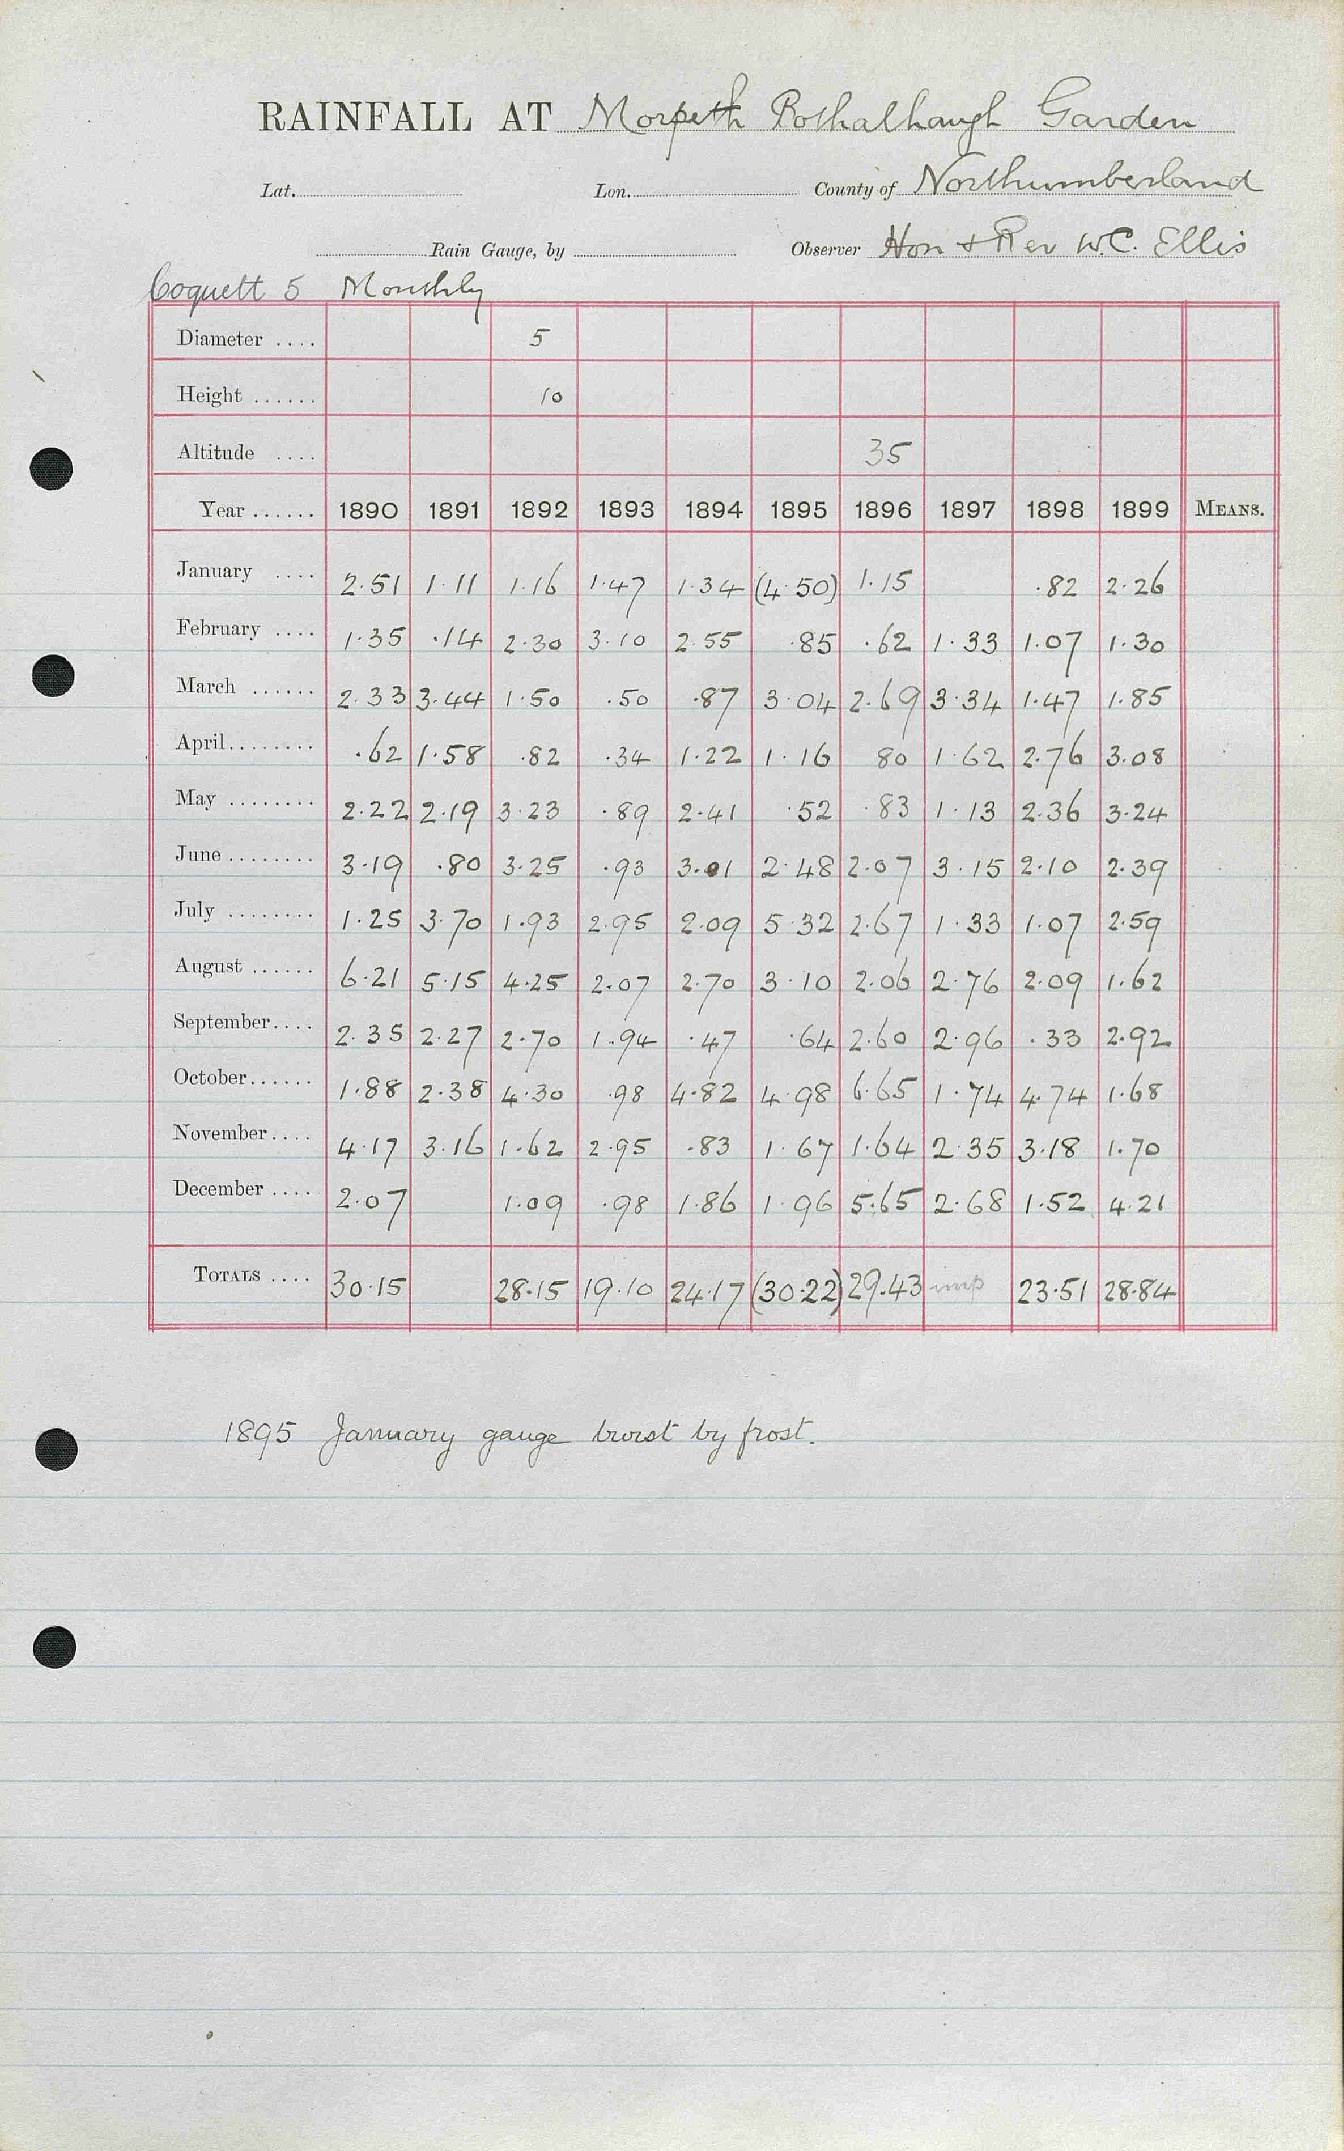 RAINFALL AT Morpeth Bothalhaugh Garden
Lat. Lon. County of Northumberland
Rain Gauge, by Observer Hon & Rev W.C. Ellis
Coquett 5 Monthly
Diameter .... 5
Height ...... 10
Altitude .... 35
Year ...... 1890 1891 1892 1893 1894 1895 1896 1897 1898 1899 MEANS.
January .... 2.51 1.11 1.16 1.47 1.34 (4.50) 1.15 .82 2.26
February .... 1.35 .14 2.30 3.10 2.55 .85 .62 1.33 1.07 1.30
March ...... 2.33 3.44 1.50 .50 .87 3.04 2.69 3.34 1.47 1.85
April........ .62 1.58 .82 .34 1.22 1.16 80 1.62 2.76 3.08
May ........ 2.22 2.19 3.23 .89 2.41 .52 .83 1.13 2.36 3.24
June ........ 3.19 .80 3.25 .93 3.01 2.48 2.07 3.15 2.10 2.39
July ........ 1.25 3.70 1.93 2.95 2.09 5.32 2.67 1.33 1.07 2.59
August ...... 6.21 5.15 4.25 2.07 2.70 3.10 2.06 2.76 2.09 1.62
September.... 2.35 2.27 2.70 1.94 .47 .64 2.60 2.96 .33 2.92
October...... 1.88 2.38 4.30 .98 4.82 4.98 6.65 1.74 4.74 1.68
November.... 4.17 3.16 1.62 2.95 .83 1.67 1.64 2.35 3.18 1.70
December .... 2.07 1.09 .98 1.86 1.96 5.65 2.68 1.52 4.21
TOTALS .... 30.15 28.15 19.10 24.17 (30.22) 29.43 imp 23.51 28.84
1895 January gauge burst by frost.